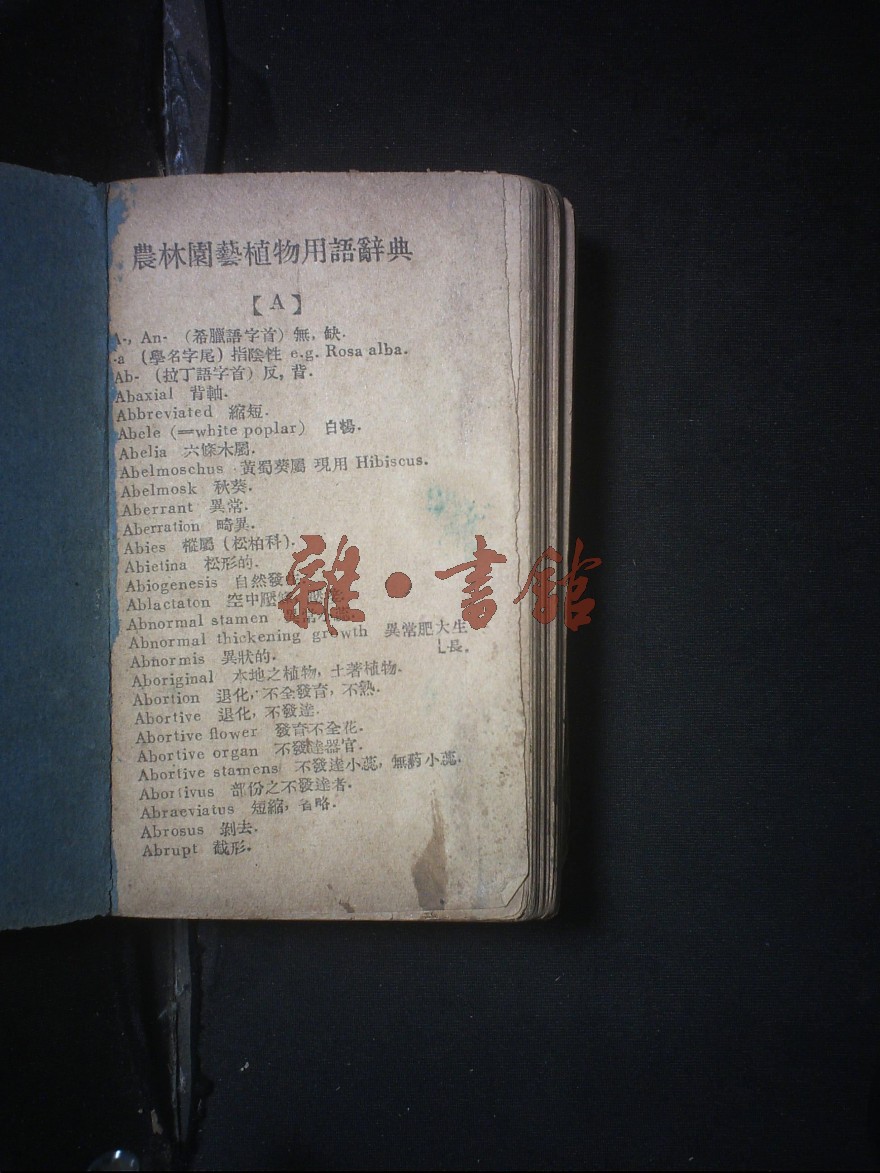 農林園藝植物用語辭典
【A】
A-, An- （希臘語字首）無，缺．
-a （學名字尾）指陰性 e.g. Rosa alba.
Ab- （拉丁語字首）反，背．
Abaxial 背軸．
Abbreviated 縮短．
Abele (=white poplar) 白楊．
Abelia 六條木屬．
Abelmoschus 黃蜀葵屬 現用 Hibiscus.
Abelmosk 秋葵．
Aberrant 異常．
Aberration 畸異．
Abies 樅屬（松柏科）．
Abietina 松形的．
Abiogenesis 自然發
Ablactaton 空中壓
Abnormal stamen
Abnormal thickening growth 異常肥大生
└長．
Abnormis 異狀的．
Aboriginal 本地之植物，土著植物．
Abortion 退化，不全發育，不熟．
Abortive 退化，不發達．
Abortive flower 發育不全花．
Abortive organ 不發達器官．
Abortive stamens 不發達小蕊，無葯小蕊．
Abortivus 部份之不發達者．
Abraeviatus 短縮，省略．
Abrosus 剝去．
Abrupt 截形．
雜·書館